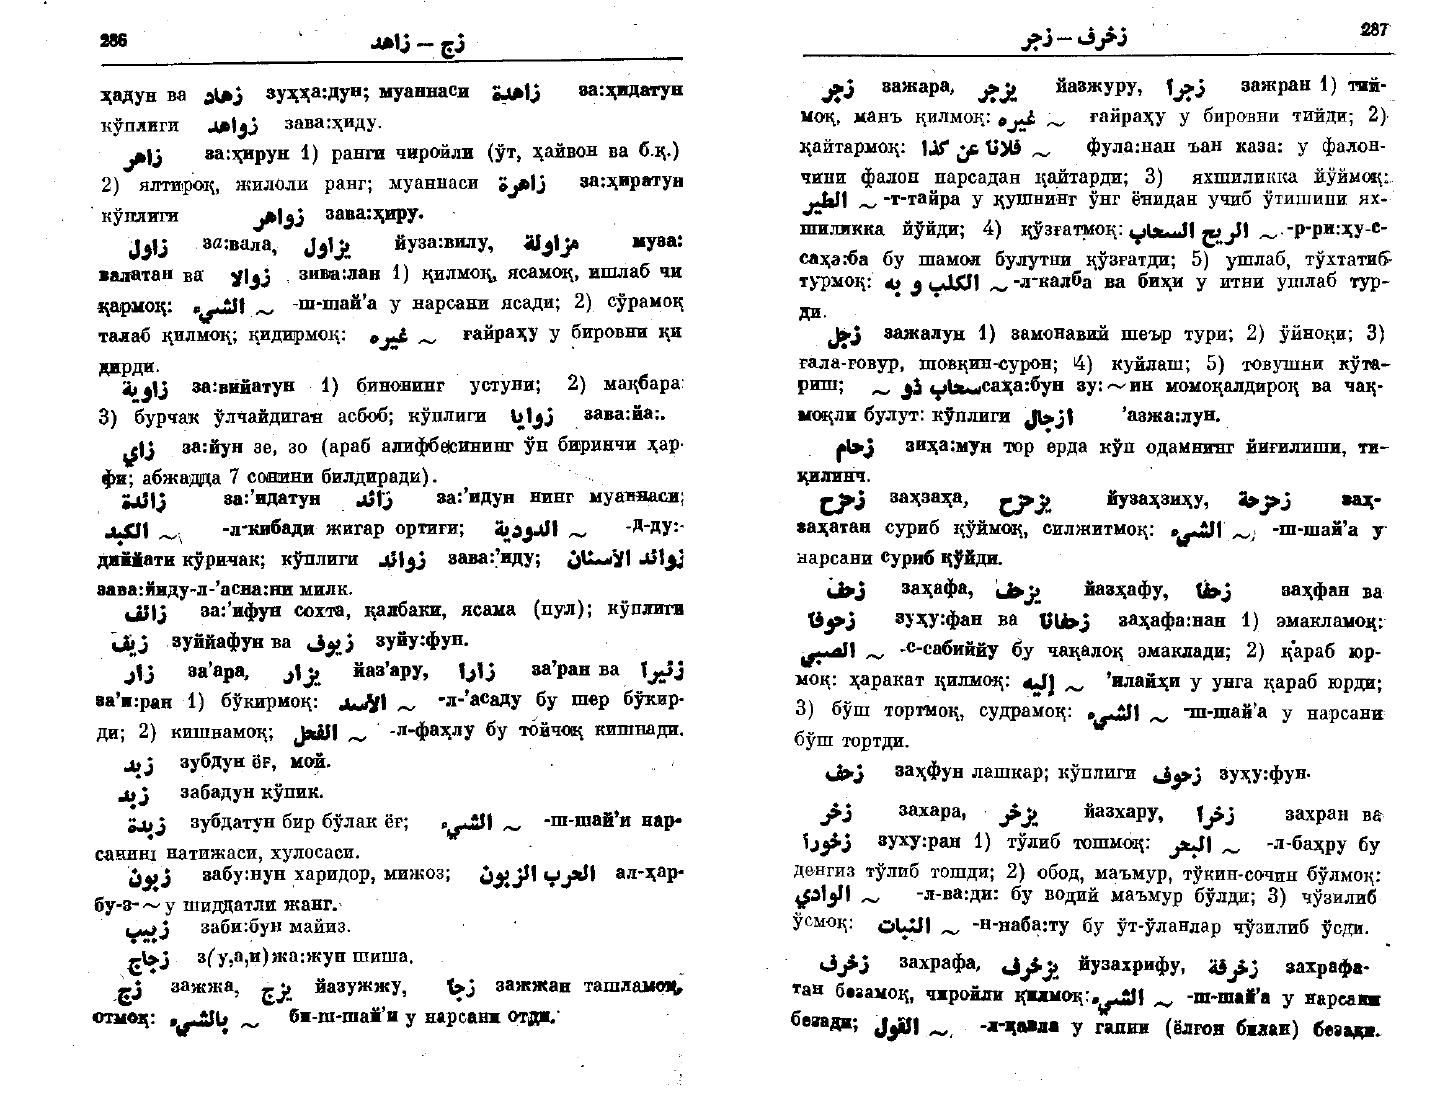 286
زج — زاهد
ҳадун ва زهاد зуҳҳа:дун; муаннаси زاهدة за:ҳидатун
кўплиги زواهد зава:ҳиду.
زاهر за:ҳирун 1) ранги чиройли (ўт, ҳайвон ва б.қ.)
2) ялтироқ, жилоли ранг; муаннаси زاهرة за:ҳиратун
кўплиги زواهر зава:ҳиру.
زاول за:вала, يزاول йуза:вилу, مزاولة муза:
валатан ва زوالا зива:лан 1) қилмоқ, ясамоқ, ишлаб чи
қармоқ: الشيء ~ -ш-шай’а у нарсани ясади; 2) сўрамоқ
талаб қилмоқ; қидирмоқ: غيره ~ ғайраҳу у бировни қи
дирди.
زاوية за:вийатун 1) бинонинг устуни; 2) мақбара:
3) бурчак ўлчайдиган асбоб; кўплиги زوايا зава:йа:.
زاي за:йун зе, зо (араб алифбесининг ўн биринчи ҳар-
фи; абжадда 7 сонини билдиради).
زائدة за:’идатун زائد за:’идун нинг муаннаси;
الكبد ~ -л-кибади жигар ортиғи; الدودية ~ -д-ду:-
диййати кўричак; кўплиги زوائد зава:’иду; زوائد الاسنان
зава:йиду-л-’асна:ни милк.
زائف за:’ифун сохта, қалбаки, ясама (пул); кўплиги
زيف зуййафун ва زيوف зуйу:фун.
زار за’ара, يزار йаз’ару, زارا за’ран ва زئيرا
за’и:ран 1) бўкирмоқ: الأسد ~ -л-’асаду бу шер бўкир-
ди; 2) кишнамоқ; الفحل ~ -л-фаҳлу бу тойчоқ кишнади.
زبد зубдун ёғ, мой.
زبد забадун кўпик.
زبدة зубдатун бир бўлак ёғ; الشيء ~ -ш-шай’и нар-
санинг натижаси, хулосаси.
زبون забу:нун харидор, мижоз; الحرب الزبون ал-ҳар-
бу-з-~ у шиддатли жанг.
زبيب заби:бун майиз.
زجاج з(у,а,и)жа:жун шиша.
زج зажжа, يزج йазужжу, زجا зажжан ташламоқ,
отмоқ: بالشيء ~ би-ш-шай’и у нарсани отди.
زخرف — زجر
287
زجر зажара, يزجر йазжуру, زجرا зажран 1) тий-
моқ, манъ қилмоқ: غيره ~ ғайраҳу у бировни тийди; 2)
қайтармоқ: فلانا عن كذا ~ фула:нан ъан каза: у фалон-
чини фалон нарсадан қайтарди; 3) яхшиликка йўймоқ:
الطير ~ -т-тайра у қушнинг ўнг ёнидан учиб ўтишини ях-
шиликка йўйди; 4) қўзғатмоқ: الريح السحاب ~ -р-ри:ҳу-с-
саҳа:ба бу шамол булутни қўзғатди; 5) ушлаб, тўхтатиб
турмоқ: الكلب و به ~ -л-калба ва биҳи у итни ушлаб тур-
ди.
زجل зажалун 1) замонавий шеър тури; 2) ўйноқи; 3)
ғала-ғовур, шовқин-сурон; 4) куйлаш; 5) товушни кўта-
риш; ~ سحاب ذو саҳа:бун зу: ~ ин момоқалдироқ ва чақ-
моқли булут: кўплиги ازجال ’азжа:лун.
زحام зиҳа:мун тор ерда кўп одамнинг йиғилиши, ти-
қилинч.
زحزح заҳзаҳа, يزحزح йузаҳзиҳу, زحزحة заҳ-
заҳатан суриб қўймоқ, силжитмоқ: الشيء ~ -ш-шай’а у
нарсани суриб қўйди.
زحف заҳафа, يزحف йазҳафу, زحفا заҳфан ва
زحوفا зуҳу:фан ва زحفانا заҳафа:нан 1) эмакламоқ:
الصبي ~ -с-сабиййу бу чақалоқ эмаклади; 2) қараб юр-
моқ: ҳаракат қилмоқ: إليه ~ ’илайҳи у унга қараб юрди;
3) бўш тортмоқ, судрамоқ: الشيء ~ -ш-шай’а у нарсани
бўш тортди.
زحف заҳфун лашкар; кўплиги زحوف зуҳу:фун.
زخر захара, يزخر йазхару, زخرا захран ва
زخورا зуху:ран 1) тўлиб тошмоқ: البحر ~ -л-баҳру бу
денгиз тўлиб тошди; 2) обод, маъмур, тўкин-сочин бўлмоқ:
الوادي ~ -л-ва:ди: бу водий маъмур бўлди; 3) чўзилиб
ўсмоқ: النبات ~ -н-наба:ту бу ўт-ўланлар чўзилиб ўсди.
زخرف захрафа, يزخرف йузахрифу, زخرفة захрафа-
тан безамоқ, чиройли қилмоқ: الشيء ~ -ш-шай’а у нарсани
безади; القول ~ -л-қавла у гапни (ёлғон билан) безади.